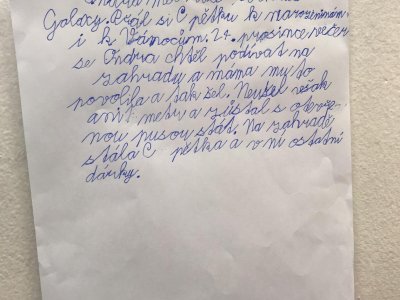 Galaxy. Přál si C pětku k narozeninám
i k Vánocům. 24. prosince večer
se Ondra chtěl podívat na
zahradu a máma mu to
povolila a tak šel. Neušel však
ani metr a zůstal s otevře-
nou pusou stát. Na zahradě
stála C pětka a v ní ostatní
dárky.